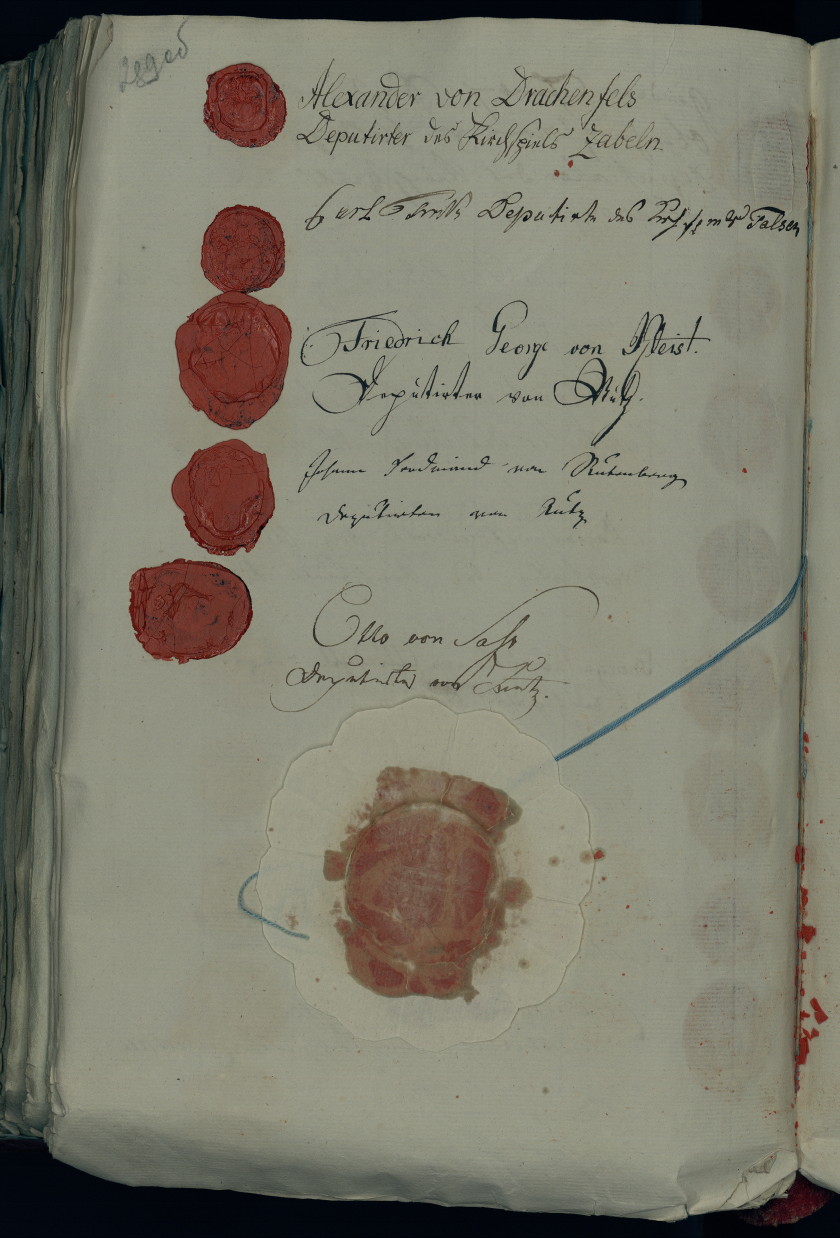 Alexander von Drachenfels
Deputirter des Kirchspiels Zabeln.
Carl Deputirte des Talsen
Friedrich George von
Deputirter von
Johann Ferdinand von Rutenberg
Deputirter von
Otto von Sass
Deputirter von